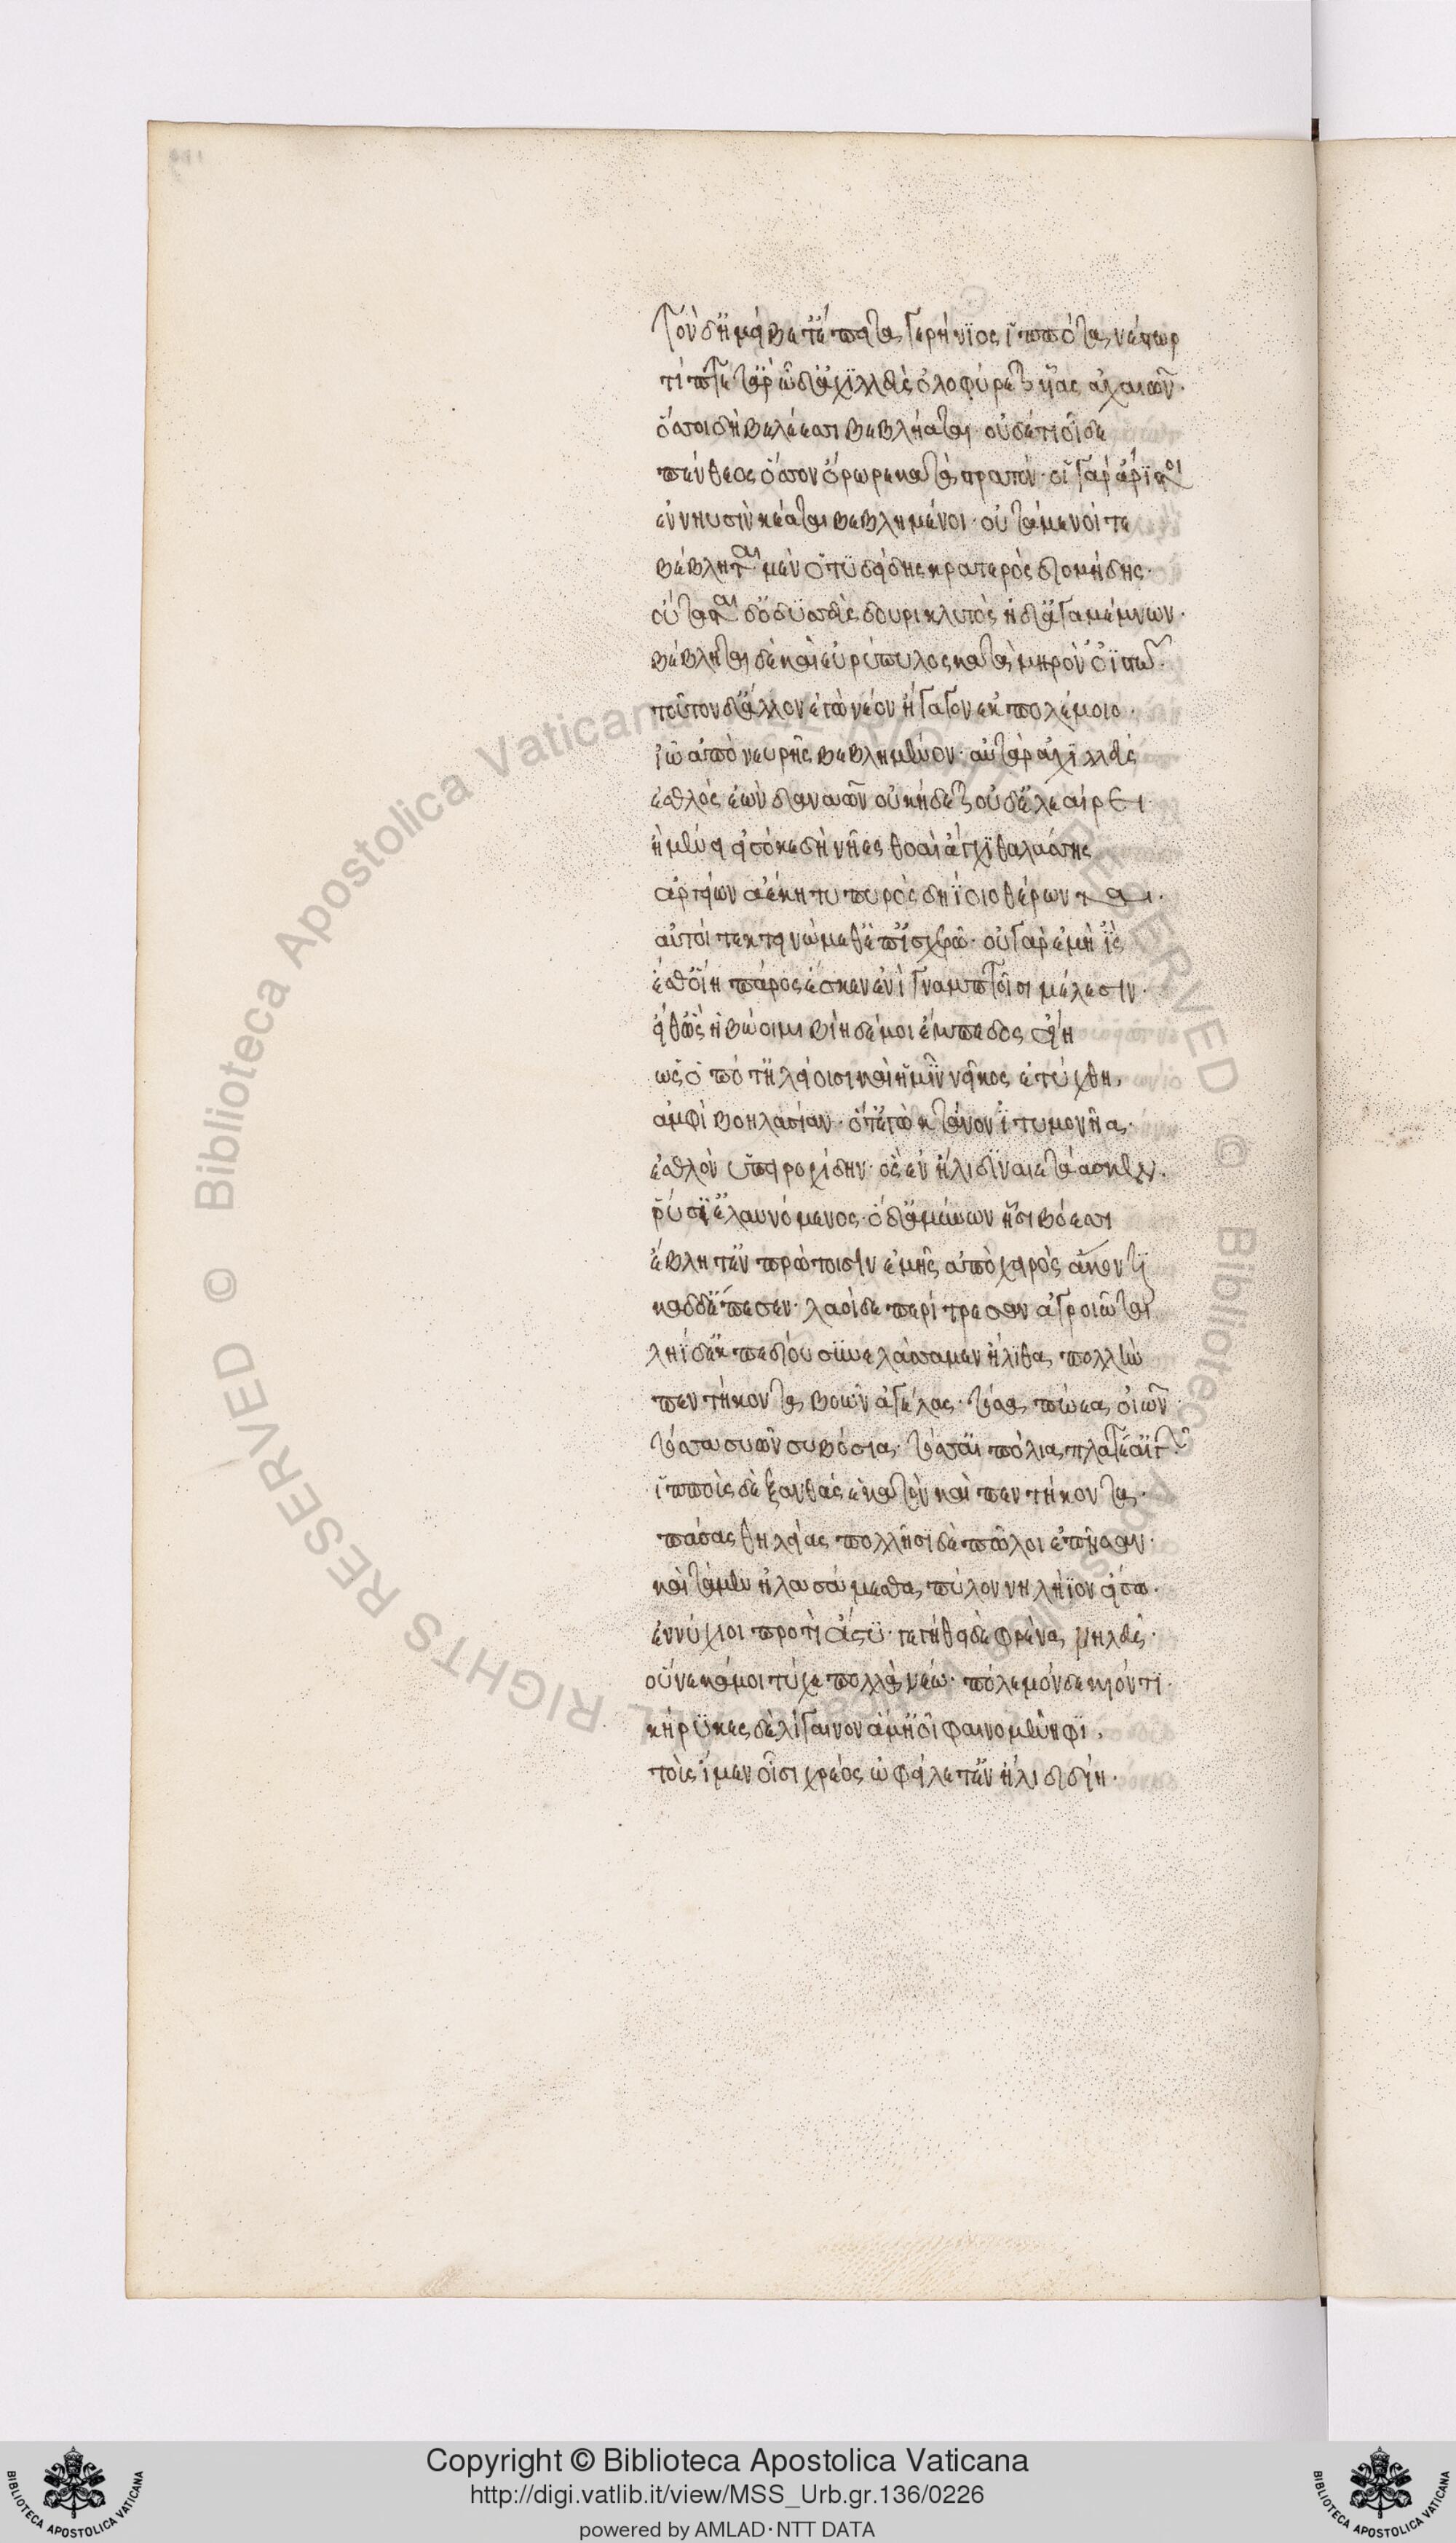 Τὸν δ' ἠμείβετ' ἔπειτα γερήνϊος ἱππότα νέστωρ
τίπτε τ' ἂρ ὧδ' ἀχϊλλεὺς ὀλοφύρεται υἷας ἀχαιῶν·
ὅσσοι δὴ βελέεσσι βεβλήαται· οὐδέ τι οἶδε
πένθεος ὅσσον ὄρωρε κατὰ στρατόν· οἱ γὰρ ἄρϊστοι
ἐν νηυσὶν κέαται βεβλημένοι· οὐτάμενοί τε
βέβληται μὲν ὁ τυδείδης κρατερὸς διομήδης·
οὔτασται δ' ὀδυσσεὺς δουρικλυτὸς ἠδ' ἀγαμέμνων·
βέβληται δὲ καὶ εὐρύπυλος κατὰ μηρὸν ὀϊστῶ·
τοῦτον δ' ἄλλον ἐγὼ νέον ἤγαγον ἐκ πολέμοιο·
ἰῶ ἀπὸ νευρῆς βεβλημένον· αὐτὰρ ἀχϊλλεὺς
ἐσθλὸς ἐὼν δαναῶν οὐ κήδεται οὐδ' ἐλεαίρει
ἢ μένει εἰσόκε δὴ νῆες θοαὶ ἄγχϊ θαλάσσης
ἀργείων ἀέκητι πυρὸς δηΐοιο θέρωνται·
αὐτοί τε κτεινώμεθ' ἐπϊσχερώ· οὐ γὰρ ἐμὴ ἲς
ἔσθ' οἵη πάρος ἔσκεν ἐνὶ γναμπτοῖσι μέλεσιν·
εἴθ' ὣς ἡβώοιμι βίη δέ μοι ἔμπεδος εἴη
ὡς ὁπότ' ἠλείοισι καὶ ἡμῖν νεῖκος ἐτύχθη,
ἀμφὶ βοηλασίαν· ὅτ' ἐγὼ κτάνον ἰτυμονῆα·
ἐσθλὸν ὑπειροχίδην· ὃς ἐν ἤλιδϊ ναιετάασκεν·
ῥύσϊ' ἐλαυνόμενος· ὁ δ' ἀμύνων ᾗσι βόεσσι
ἔβλητ' ἐν πρώτοισιν ἐμῆς ἀπὸ χειρὸς ἄκοντϊ
καδδ' ἔπεσεν· λαοὶ δὲ περίτρεσαν ἀγροιῶται
ληΐδ' ἐκ πεδίου συνελάσσαμεν ἤλϊθα πολλὴν
πεντήκοντα βοῶν ἀγέλας· τόσα πώεα οἰῶν
τόσσα συῶν συβόσια· τόσσ' αἰπόλια πλατέ' αἰγῶν
ἵππους δὲ ξανθὰς ἑκατὸν καὶ πεντήκοντα·
πάσας θηλείας πολλῇσϊ δὲ πῶλοι ἐπῆσαν·
καὶ τὰ μὲν ἠλασάμεσθα πύλον νηλήϊον εἴσω·
ἐννύχιοι προτὶ ἄστϋ· γεγήθει δὲ φρένα νηλεύς·
οὕνεκά μοι τύχε πολλὰ νέω· πόλεμον δὲ κιόντϊ·
κήρϋκες δὲ λίγαινον ἅμ' ἠοῖ φαινομένηφϊ,
τοὺς ἴμεν οἷσι χρέος ὠφείλετ' ἐν ἤλιδι δίη·
Copyright © Biblioteca Apostolica Vaticana
http://digi.vatlib.it/view/MSS_Urb.gr.136/0226
powered by AMLAD·NTT DATA